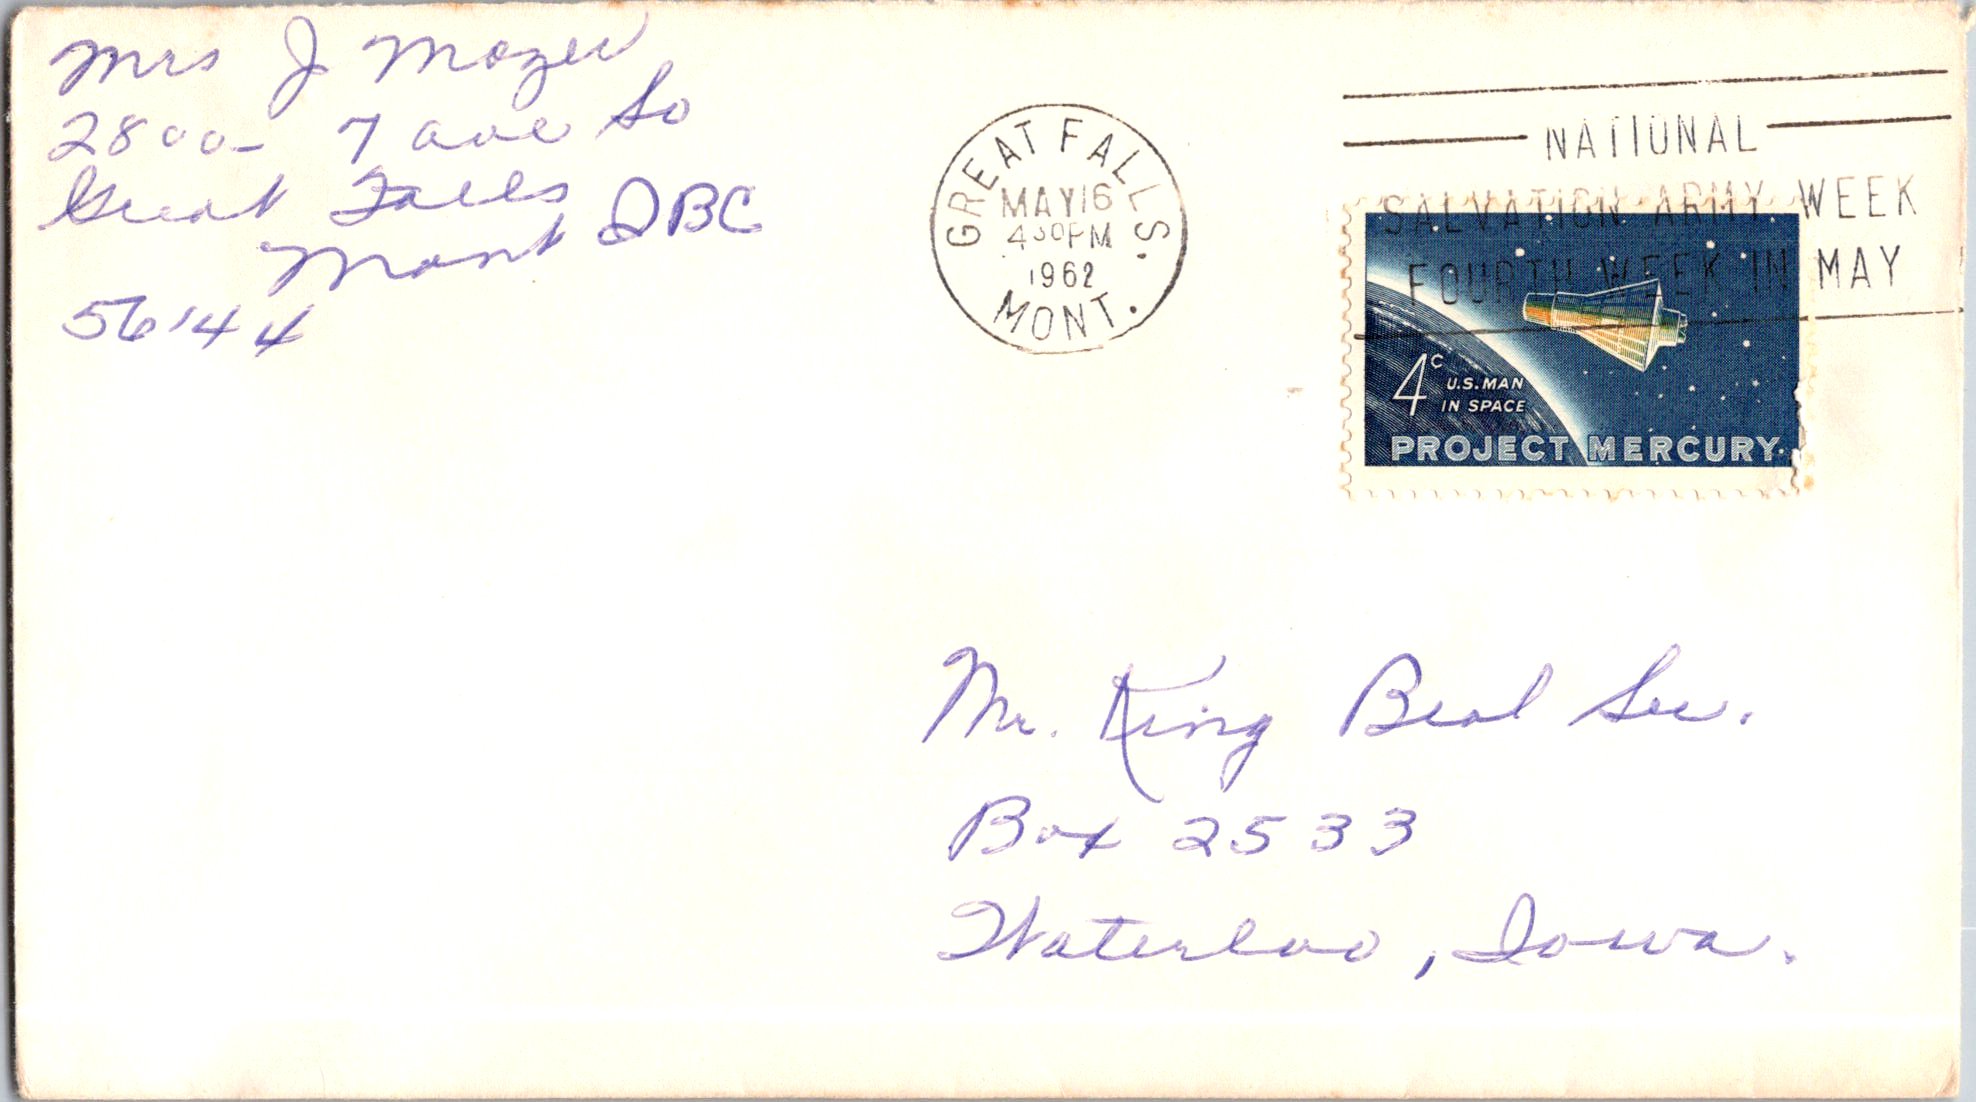 Mrs J Mozer
2800- 7 ave So
Great Falls
Mont DBC
56144
GREAT FALLS.
MAY 16
430PM
1962
MONT.
NATIONAL
SALVATION ARMY WEEK
FOURTH WEEK IN MAY
4c U.S. MAN
IN SPACE
PROJECT MERCURY
Mr. King Beal Sec.
Box 2533
Waterloo, Iowa.